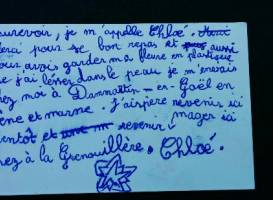 aurevoir, je m'appelle Chloé.
erci pour se bon repas et aussi
ous avoi garder ma fleure en plastique
e j'ai lesser dans le peau je m'en vais
ez moi à Dammartin-en-Goël en
ène et marne. J'aispère revenir ici
entôt et revenir mager ici
ez à la Grenouillère. Chloé.